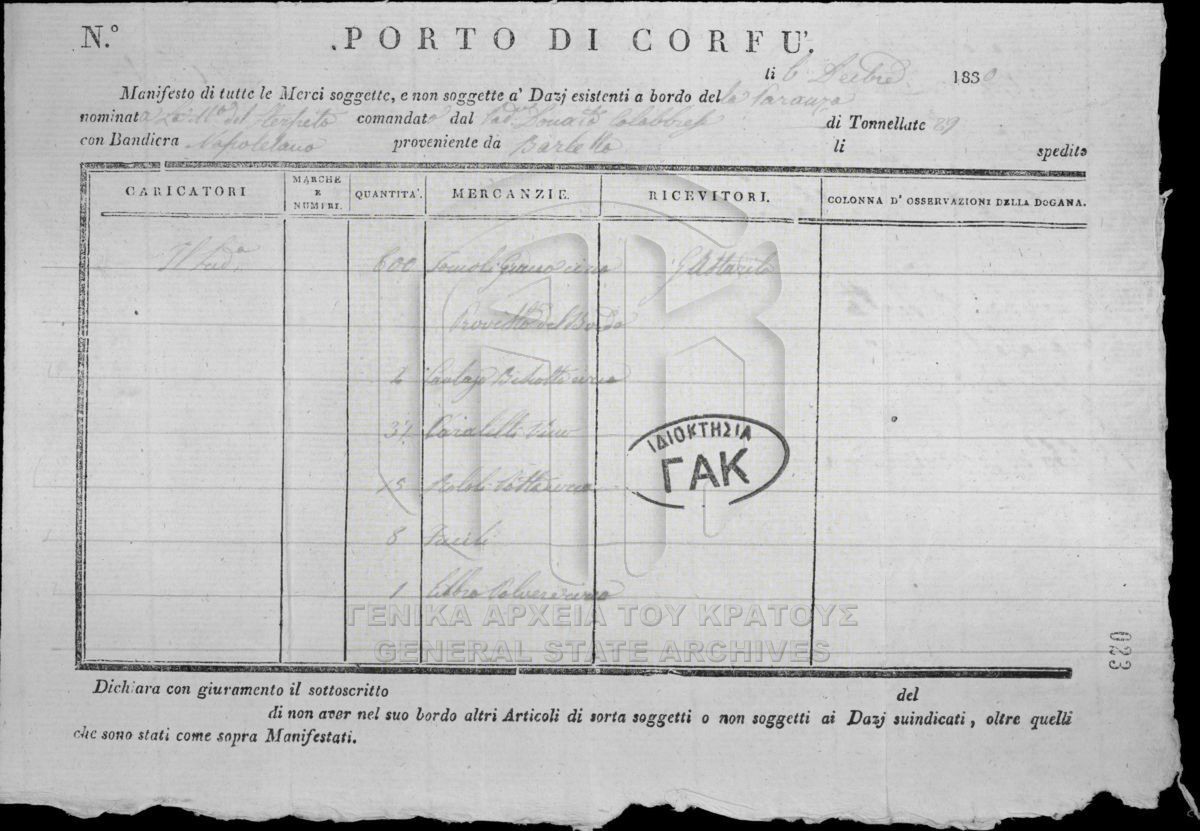 N.º PORTO DI CORFU'.
li 6 Decbre 1830
Manifesto di tutte le Merci soggette, e non soggette a' Dazj esistenti a bordo del
nominat comandat dal Donato di Tonnellate 89
con Bandiera Napoletano proveniente da Barletta li spedito
CARICATORI MARCHE E NUMERI. QUANTITA'. MERCANZIE. RICEVITORI. COLONNA D' OSSERVAZIONI DELLA DOGANA.
Il Pad.º 600 Tomoli Grano circa
del Bordo
2 Biscotto circa
37 Vino
15 circa
8 Fucili
1 Polvere circa
ΙΔΙΟΚΤΗΣΙΑ
ΓΑΚ
ΓΕΝΙΚΑ ΑΡΧΕΙΑ ΤΟΥ ΚΡΑΤΟΥΣ
GENERAL STATE ARCHIVES
023
Dichiara con giuramento il sottoscritto del
di non aver nel suo bordo altri Articoli di sorta soggetti o non soggetti ai Dazj suindicati, oltre quelli
che sono stati come sopra Manifestati.